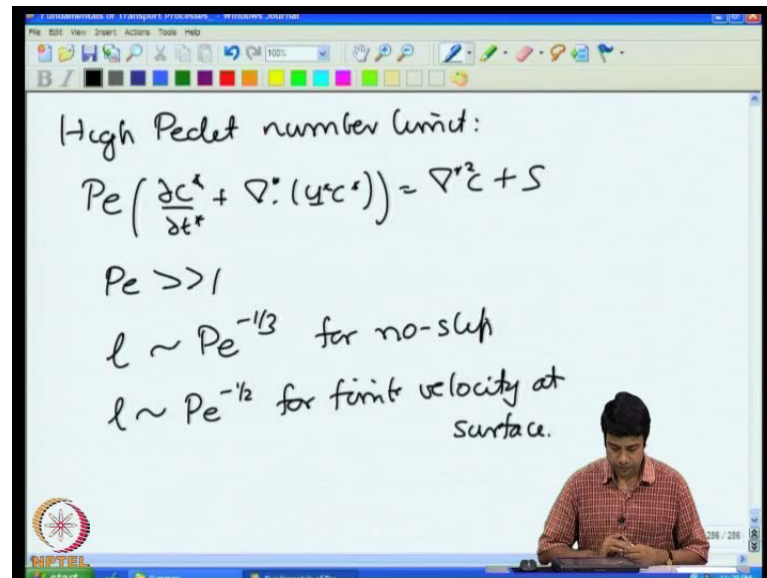 Fundamentals of Transport Processes_ - Windows Journal
File Edit View Insert Actions Tools Help
100%
B I
High Peclet number limit:
Pe ( ∂c* / ∂t* + ∇*. (u*c*) ) = ∇*²c + S
Pe >>1
l ~ Pe^-1/3 for no-slip
l ~ Pe^-1/2 for finite velocity at
surface.
286 / 286
NPTEL
start